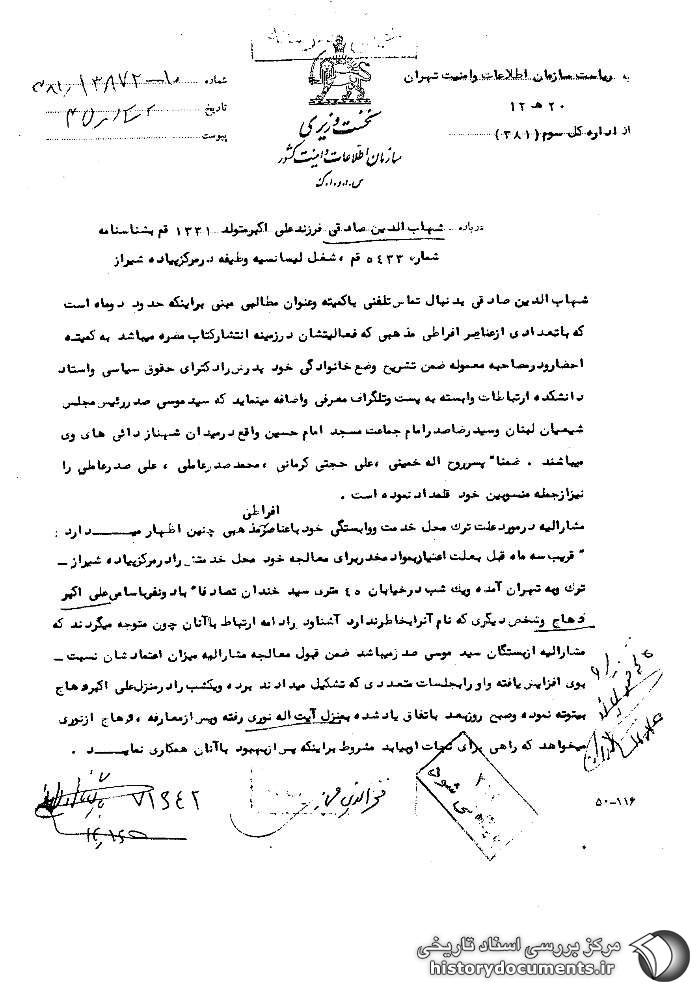 به ریاست سازمان اطلاعات وامنیت تهران
۲۰ هـ ۱۲
از اداره کل سوم (۳۸۱)
نخست وزیری
سازمان اطلاعات و امنیت کشور
س.ا.و.ا.ک
شماره
تاریخ
پیوست
درباره شهاب الدین صادقی فرزند علی اکبر متولد ۱۳۳۱ قم بشناسنامه
شماره ۵۴۳۳ قم ، شغل لیسانسیه وظیفه در مرکز پیاده شیراز
شهاب الدین صادقی بدنبال تماس تلفنی باکمیته وعنوان مطالبی مبنی براینکه حدود دوماه است
که باتعدادی ازعناصر افراطی مذهبی که فعالیتشان درزمینه انتشارکتاب مضره میباشد به کمیته
احضارودرمصاحبه معموله ضمن تشریح وضع خانوادگی خود پدرش رادکترای حقوق سیاسی واستاد
دانشکده ارتباطات وابسته به پست وتلگراف معرفی واضافه مینماید که سید موسی صدررئیس مجلس
شیعیان لبنان وسید رضاصدرامام جماعت مسجد امام حسین واقع درمیدان شهناز دائی های وی
میباشند . ضمنا" پسرروح اله خمینی ،علی حجتی کرمانی ، محمدصدرعاملی ، علی صدرعاملی را
نیزازجمله منسوبین خود قلمداد نموده است .
مشارالیه درمورد علت ترک محل خدمت ووابستگی خود باعناصر افراطی مذهبی چنین اظهار میـــدارد :
" قریب سه ماه قبل بعلت اعتیاز بمواد مخدر برای معالجه خود محل خدمتش رادرمرکزپیاده شیراز ـ
ترک وبه تهران آمده ویک شب درخیابان ۴۵ متری سید خندان تصادفا" بادونفرباسامی علی اکبر
وهاج وشخص دیگری که نام آنرابخاطرندارد آشناودرادامه ارتباط باآنان چون متوجه میگردند که
مشارالیه ازبستگان سید موسی صدرمیباشد ضمن قبول معالجه مشارالیه میزان اعتمادشان نسبت ـ
بوی افزایش یافته واورابجلسات متعددی که تشکیل میدادند برده ویکشب رادرمنزل علی اکبروهاج
بیتوته نموده وصبح روزبعد باتفاق یادشده بمنزل آیت اله نوری رفته وپس ازمعارفه ، وهاج ازنوری
میخواهد که راهی برای نجات اوبیابد مشروط براینکه پس ازبهبود باآنان همکاری نمایــــد .
۷۱۹۴۲
۵۰-۱۱۶
مرکز بررسی اسناد تاریخی
historydocuments.ir